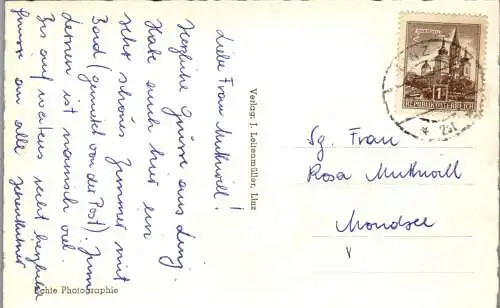 Liebe Frau Muthwill!
Herzliche Grüsse aus Linz.
Habe auch hier ein
sehr schönes Zimmer mit
Bad (gemietet von der Post). Zum
Lernen ist nämlich viel.
Bis auf weiteres recht herzliche
Grüsse an alle
Echte Photographie
Verlag: J. Lotzenmüller, Linz
MARIAZELL
1 S
REPUBLIK ÖSTERREICH
Sg. Frau
Rosa Muthwill
Mondsee